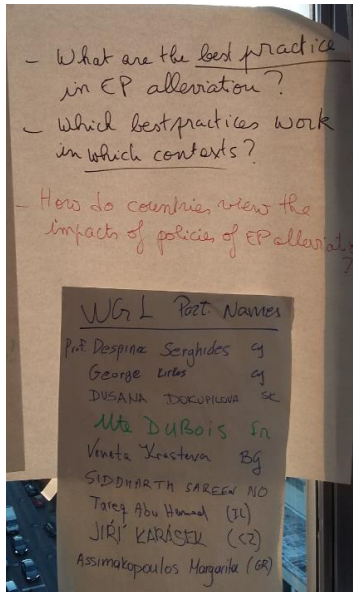 - What are the best practice
in EP alleviation?
- Which best practices work
in which contexts?
- How do countries view the
impacts of policies of EP alleviat
?
WG1 Part. Names
Prof. Despina Serghides CY
George CY
DUSANA DOKUPILOVA SK
Ute DUBOIS Fr
Veneta Krasteva BG
SIDDHARTH SAREEN NO
Tareq Abu Hamed (IL)
JIŘÍ KARÁSEK (CZ)
Assimakopoulos Margarita (GR)